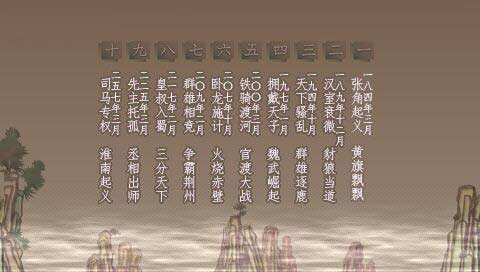 一
一八四年二月
张角起义 黄旗飘飘
二
一八九年十二月
汉室衰微 豺狼当道
三
一九四年十月
天下骚乱 群雄逐鹿
四
一九七年一月
拥戴天子 魏武崛起
五
二〇〇年二月
铁骑渡河 官渡大战
六
二〇七年十月
卧龙施计 火烧赤壁
七
二〇九年二月
群雄相竞 争霸荆州
八
二一七年二月
皇叔入蜀 三分天下
九
二二五年三月
先主托孤 丞相出师
十
二五七年二月
司马专权 淮南起义